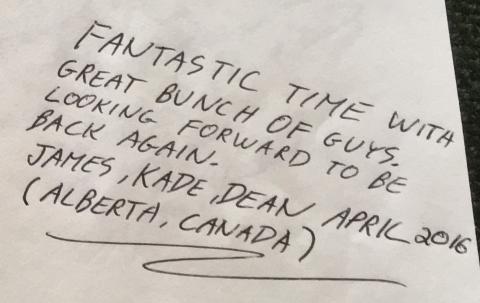 FANTASTIC TIME WITH
GREAT BUNCH OF GUYS.
LOOKING FORWARD TO BE
BACK AGAIN.
JAMES, KADE, DEAN APRIL 2016
(ALBERTA, CANADA)